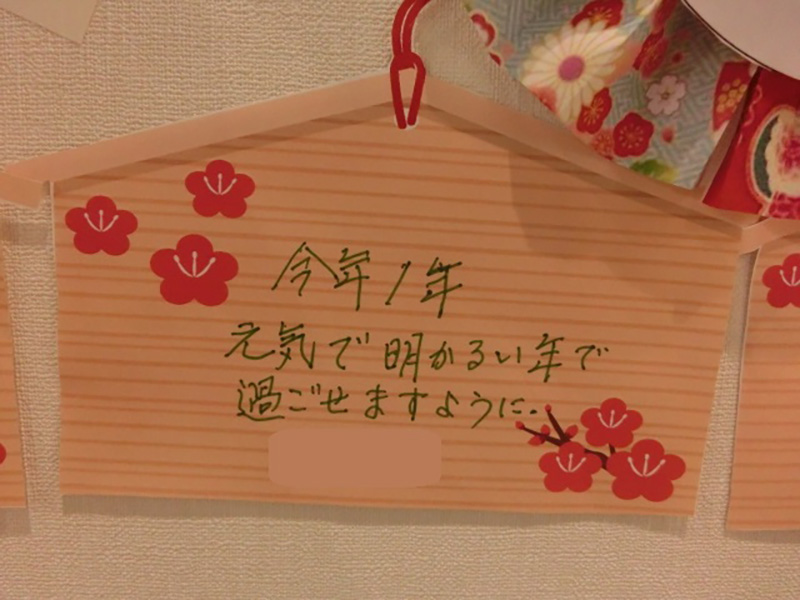 今年1年
元気で明かるい年で
過ごせますように.